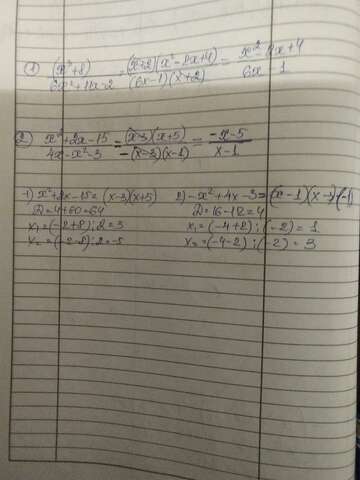 1) (x³+8)/(6x²+11x-2) = (x+2)(x²-2x+4)/((6x-1)(x+2)) = (x²-2x+4)/(6x-1)
2) (x²+2x-15)/(4x-x²-3) = (x-3)(x+5)/(-(x-3)(x-1)) = (-x-5)/(x-1)
1) x²+2x-15=(x-3)(x+5)
D=4+60=64
x₁=(-2+8):2=3
x₂=(-2-8):2=-5
2) -x²+4x-3=(x-1)(x-3)(-1)
D=16-12=4
x₁=(-4+2):(-2)=1
x₂=(-4-2):(-2)=3